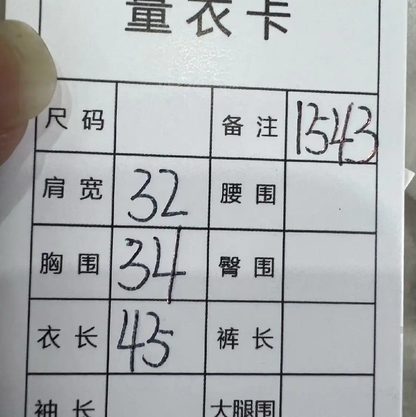 量衣卡
尺码 备注 1543
肩宽 32 腰围
胸围 34 臀围
衣长 45 裤长
袖长 大腿围